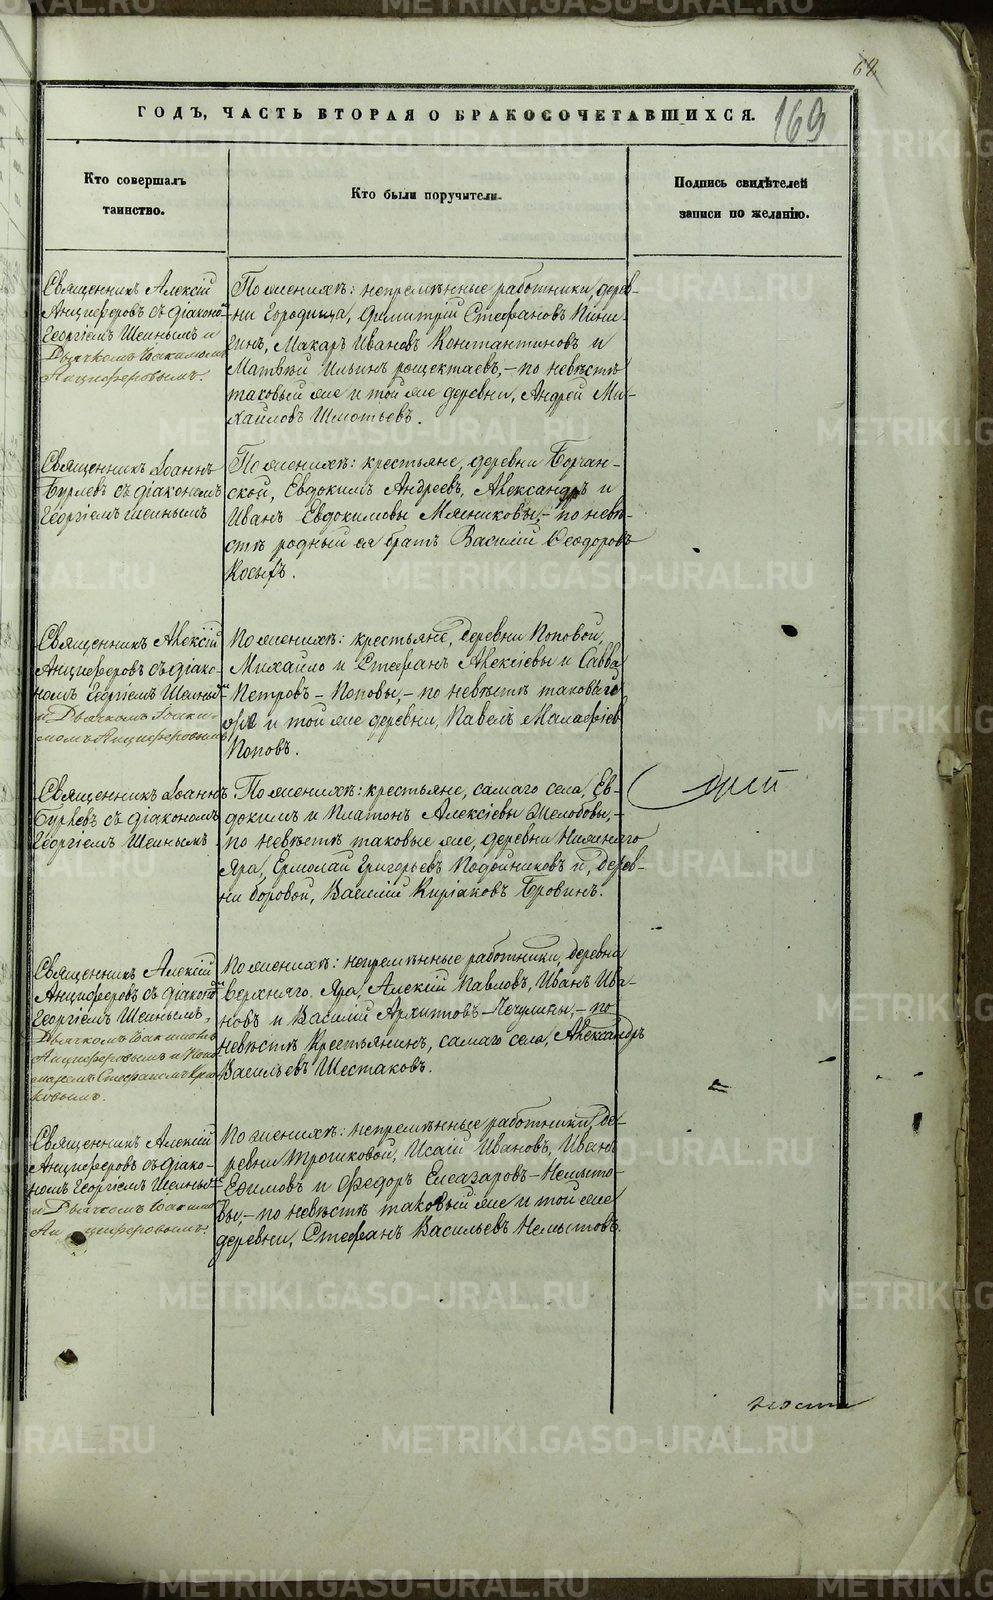 68
ГОДЪ, ЧАСТЬ ВТОРАЯ О БРАКОСОЧЕТАВШИХСЯ.
169
Кто совершалъ
таинство.
Кто были поручители.
Подпись свидѣтелей
записи по желанію.
Священникъ Алексій
Анциферовъ съ діакономъ
Георгіемъ Шеинымъ и
Дьячкомъ Іоакимомъ
Анциферовымъ.
По женихѣ: непремѣнные работники, дерев-
ни Городища, Димитрій Стефановъ Пини-
гинъ, Макаръ Ивановъ Константиновъ и
Матвѣй Ильинъ рощектаевъ,- по невѣстѣ
таковый же и той же деревни, Андрей Ми-
хайловъ Шмотьевъ.
Священникъ Іоаннъ
Бурлевъ съ діакономъ
Георгіемъ Шеинымъ
По женихѣ: крестьяне, деревни
ской, Евдокимъ Андреевъ, Александръ и
Иванъ Евдокимовы Мясниковы,- по невѣ-
стѣ родный ея братъ Василій Ѳеодоровъ
Косыхъ.
Священникъ Алексій
Анциферовъ съ діако-
номъ Георгіемъ Шеинымъ
и Дьячкомъ Іоаки-
момъ Анциферовымъ
По женихѣ: крестьяне, деревни Поповой,
Михайло и Стефанъ Алексіевы и Савва
Петровъ - Поповы,- по невѣстѣ таковаго
же и той же деревни, Павелъ Малафіев
Поповъ.
Священникъ Іоаннъ
Бурлевъ съ діакономъ
Георгіемъ Шеинымъ
По женихѣ: крестьяне, самаго села, Ев-
докимъ и Платонъ Алексіевы Желобовы,-
по невѣстѣ таковые же, деревни Нижняго
Яра, Ермолай Григорьевъ Подойниковъ и, дерев-
ни боровой, Василій Киріаковъ Бровинъ.
Священникъ Алексій
Анциферовъ съ діакономъ
Георгіемъ Шеинымъ,
Дьячкомъ Іоакимомъ
Анциферовымъ и Поно-
маремъ Стефаномъ Крю-
ковымъ.
По женихѣ: непремѣнные работники, деревни
Верхняго Яра, Алексій Павловъ, Иванъ Ива-
новъ и Василій Архиповъ - Чечулины,- по
невѣстѣ крестьянинъ, самаго села, Александръ
Васильевъ Шестаковъ.
Священникъ Алексій
Анциферовъ съ діако-
номъ Георгіемъ Шеинымъ
и Дьячкомъ Іоакимомъ
Анциферовымъ.
По женихѣ: непремѣнные работники, де-
ревни Трошковой, Исаій Ивановъ, Иванъ
Ефимовъ и Федоръ Елеазаровъ - Немыто-
вы,- по невѣстѣ таковый же и той же
деревни, Стефанъ Васильевъ Немытовъ.
METRIKI.GASO-URAL.RU